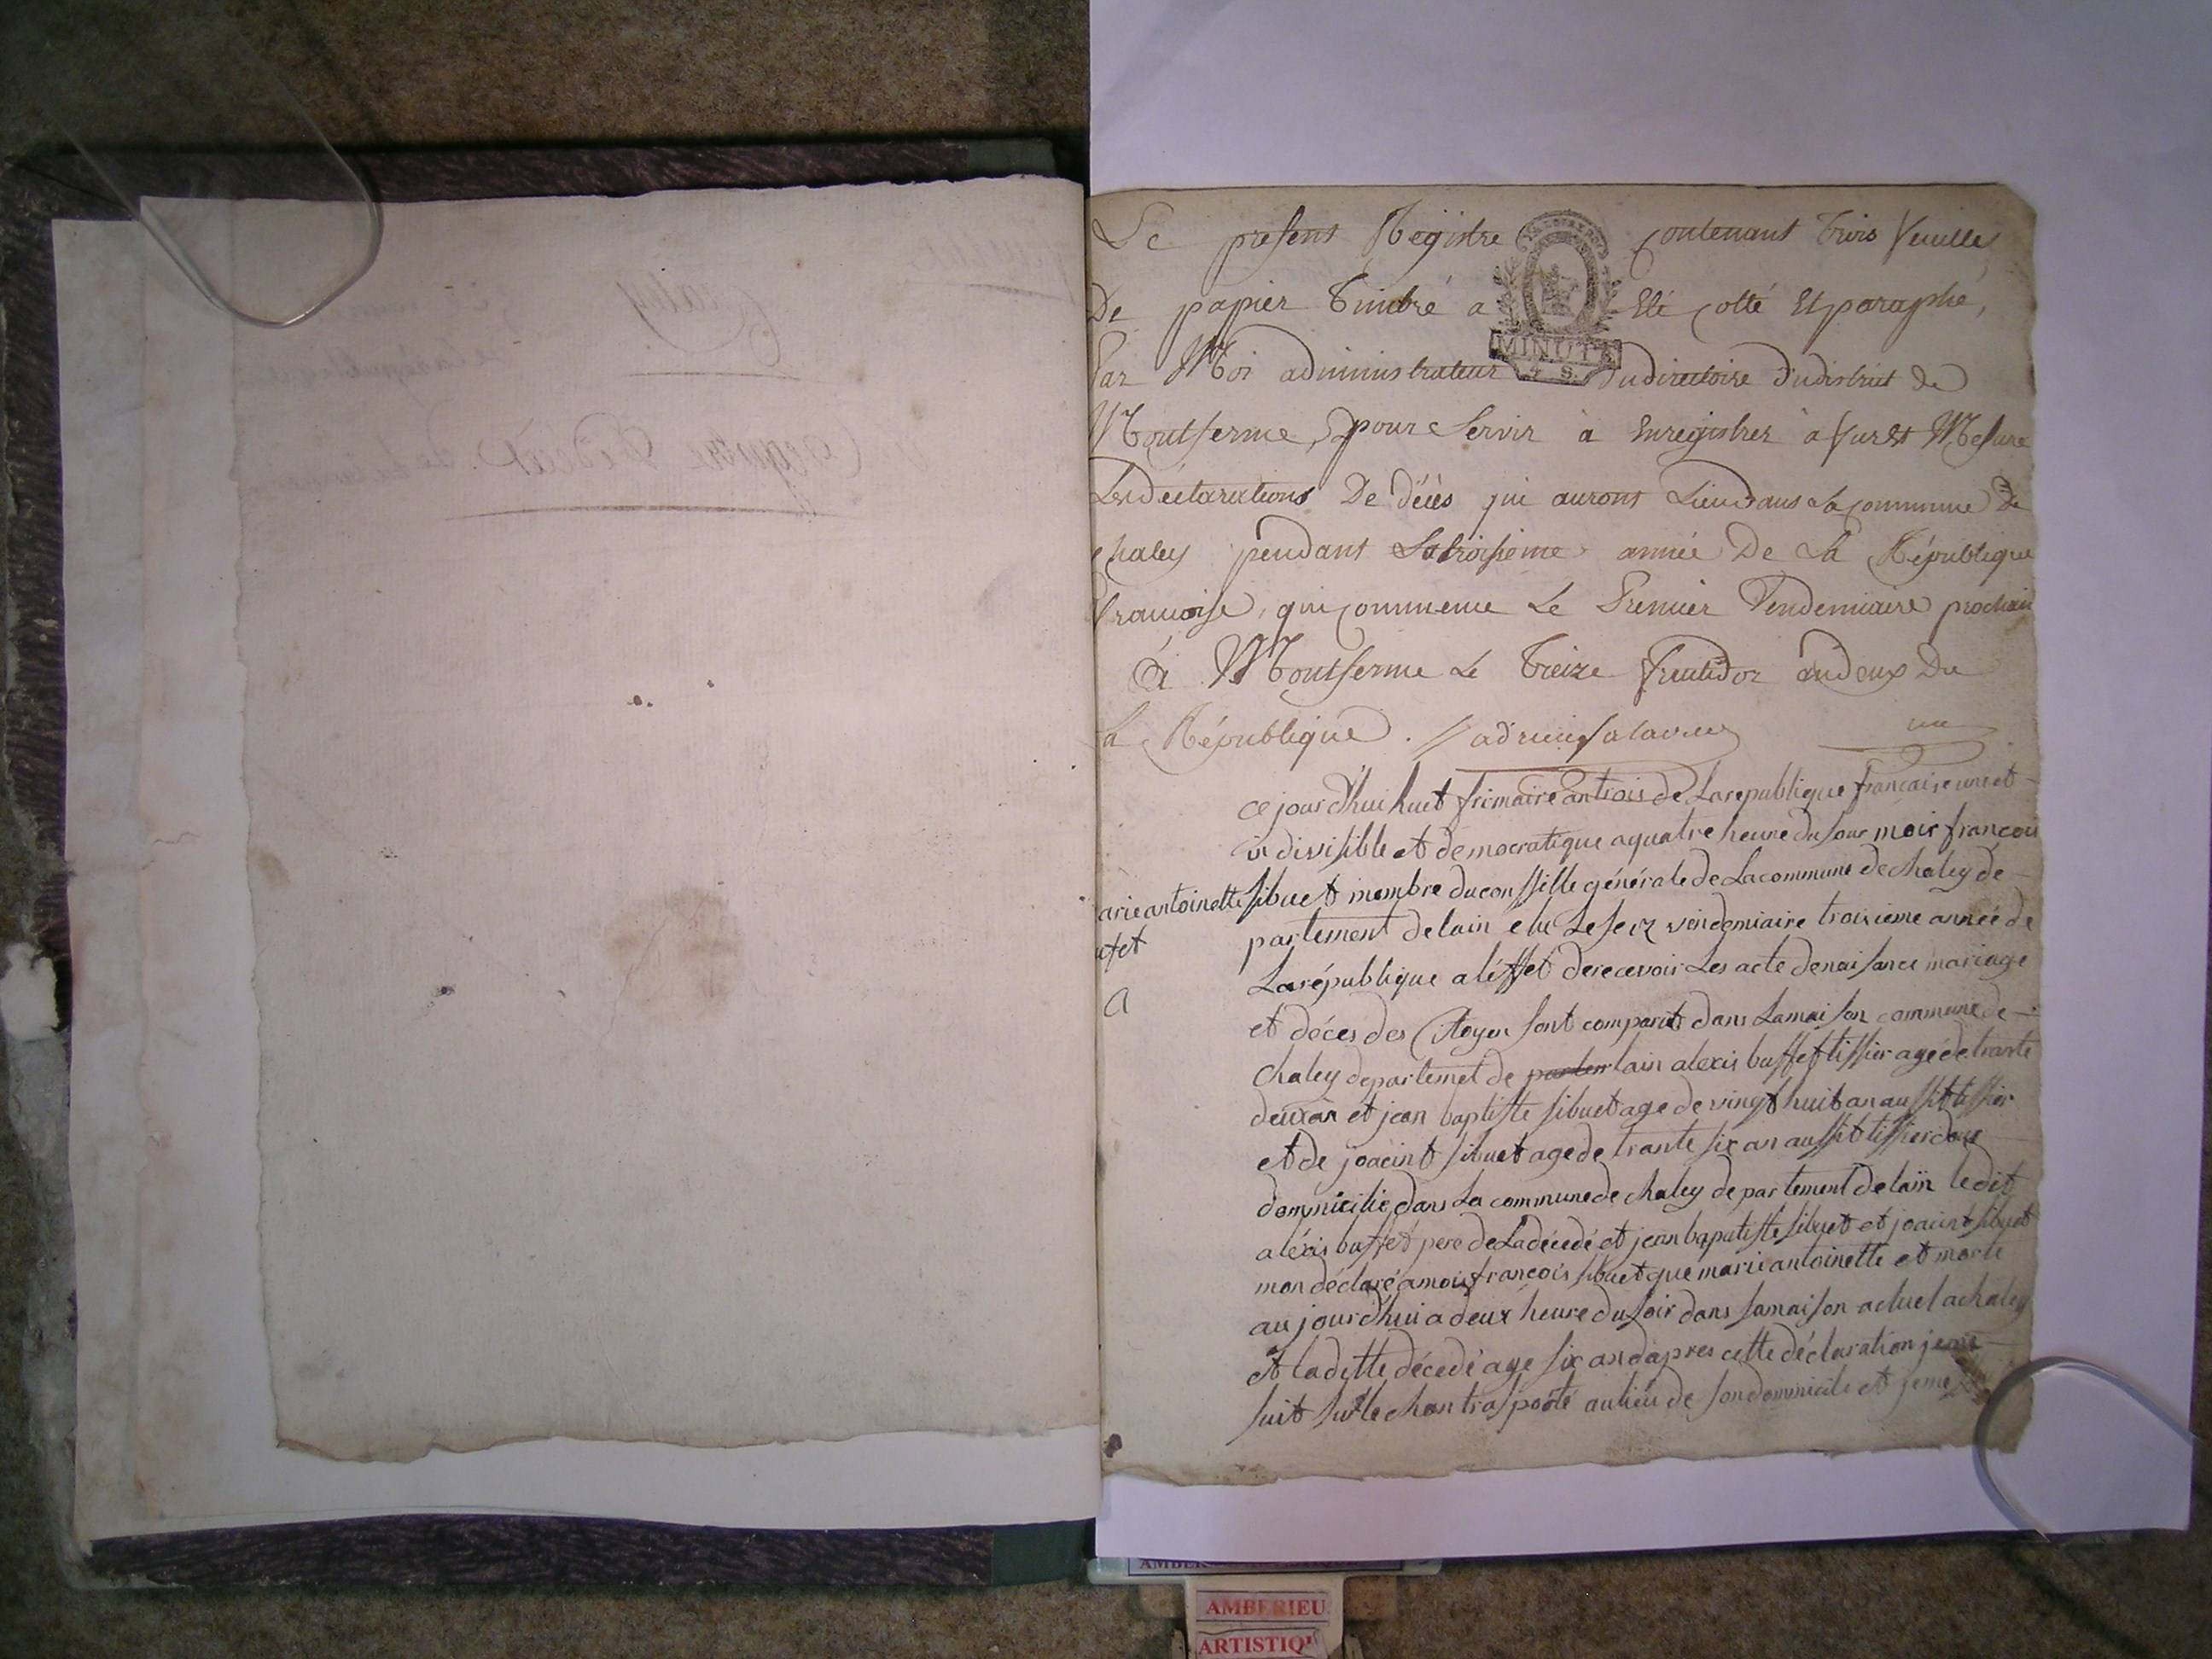 Le present Régistre contenant trois feuilles
De papier timbré a Eté cotté Et paraphé,
Par Moi administrateur du directoire du district de
Montferme, pour servir à Enregistrer à fur Et Mesure
Les déclarations De décès qui auront Lieu dans La commune De
chaley pendant La troisieme année De La République
françoise, qui commence Le Premier Vendemiaire prochain
à Montferme Le treize fructidor an deux De
La République.
un
MINUTE
4 S.
ce jourd'hui huet frimaire an trois de La republique francaise une et
in divisible et démocratique a quatre heure du soir moir francois
sibuet membre du conssille générale de La commune de chaley de
partement de lain elu Le seiz vendemiaire troisieme année de
La république a léffet de recevoir Les acte de naisance mariage
et déces des Citoyen sont comparut dans La maison commune de
chaley departemet de lain alexis buffet tissier agé de trante
deux an et jean baptiste sibuet age de vingt huit an aussit tissier
et de joacint sibuet age de trante six an aussit tissier
domnicilie dans La commune de chaley de partement de lain le dit
aléxis buffet pere de La décedé et jean baptiste sibuet et joacint sibuet
mon déclaré a mois francois sibuet que marie antoinette et morte
au jourd'hui a deux heure du soir dans sa maison actuel a chaley
et la ditte décedé age six an dapres cette déclaration je me
suit sur le chan trasporté au lieu de son domnicile et je me
arie antoinette
ufet
a
AMBERIEU
ARTISTIQ